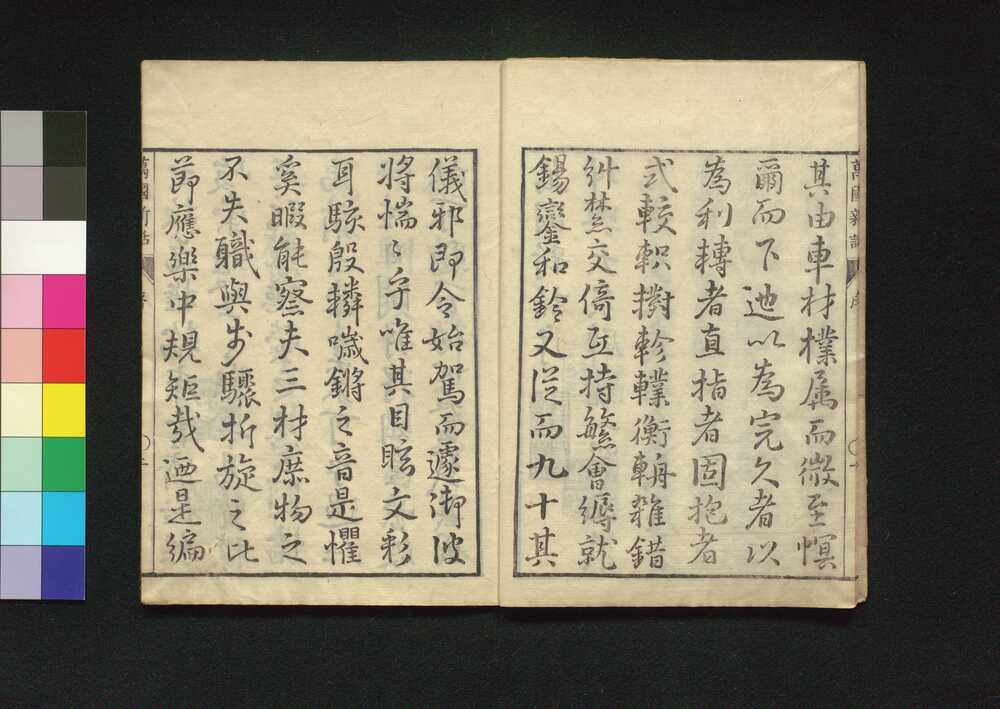 其由車材樸属而微至幎
爾而下迆以為完久者以
為利轉者直指者固抱者
式較軹轛軫轐衡軜雜錯
糾楚交倚互持繁會縟就
錫鑾和鈴又從而九十其
儀邪即令始駕而遽御彼
將惴〻乎唯其目眩文彩
耳駭殷轔噦鏘之音是懼
奚暇能察夫三材庶物之
不失職與步驟折旋之比
節應樂中規矩哉迺是編
萬國新話
序